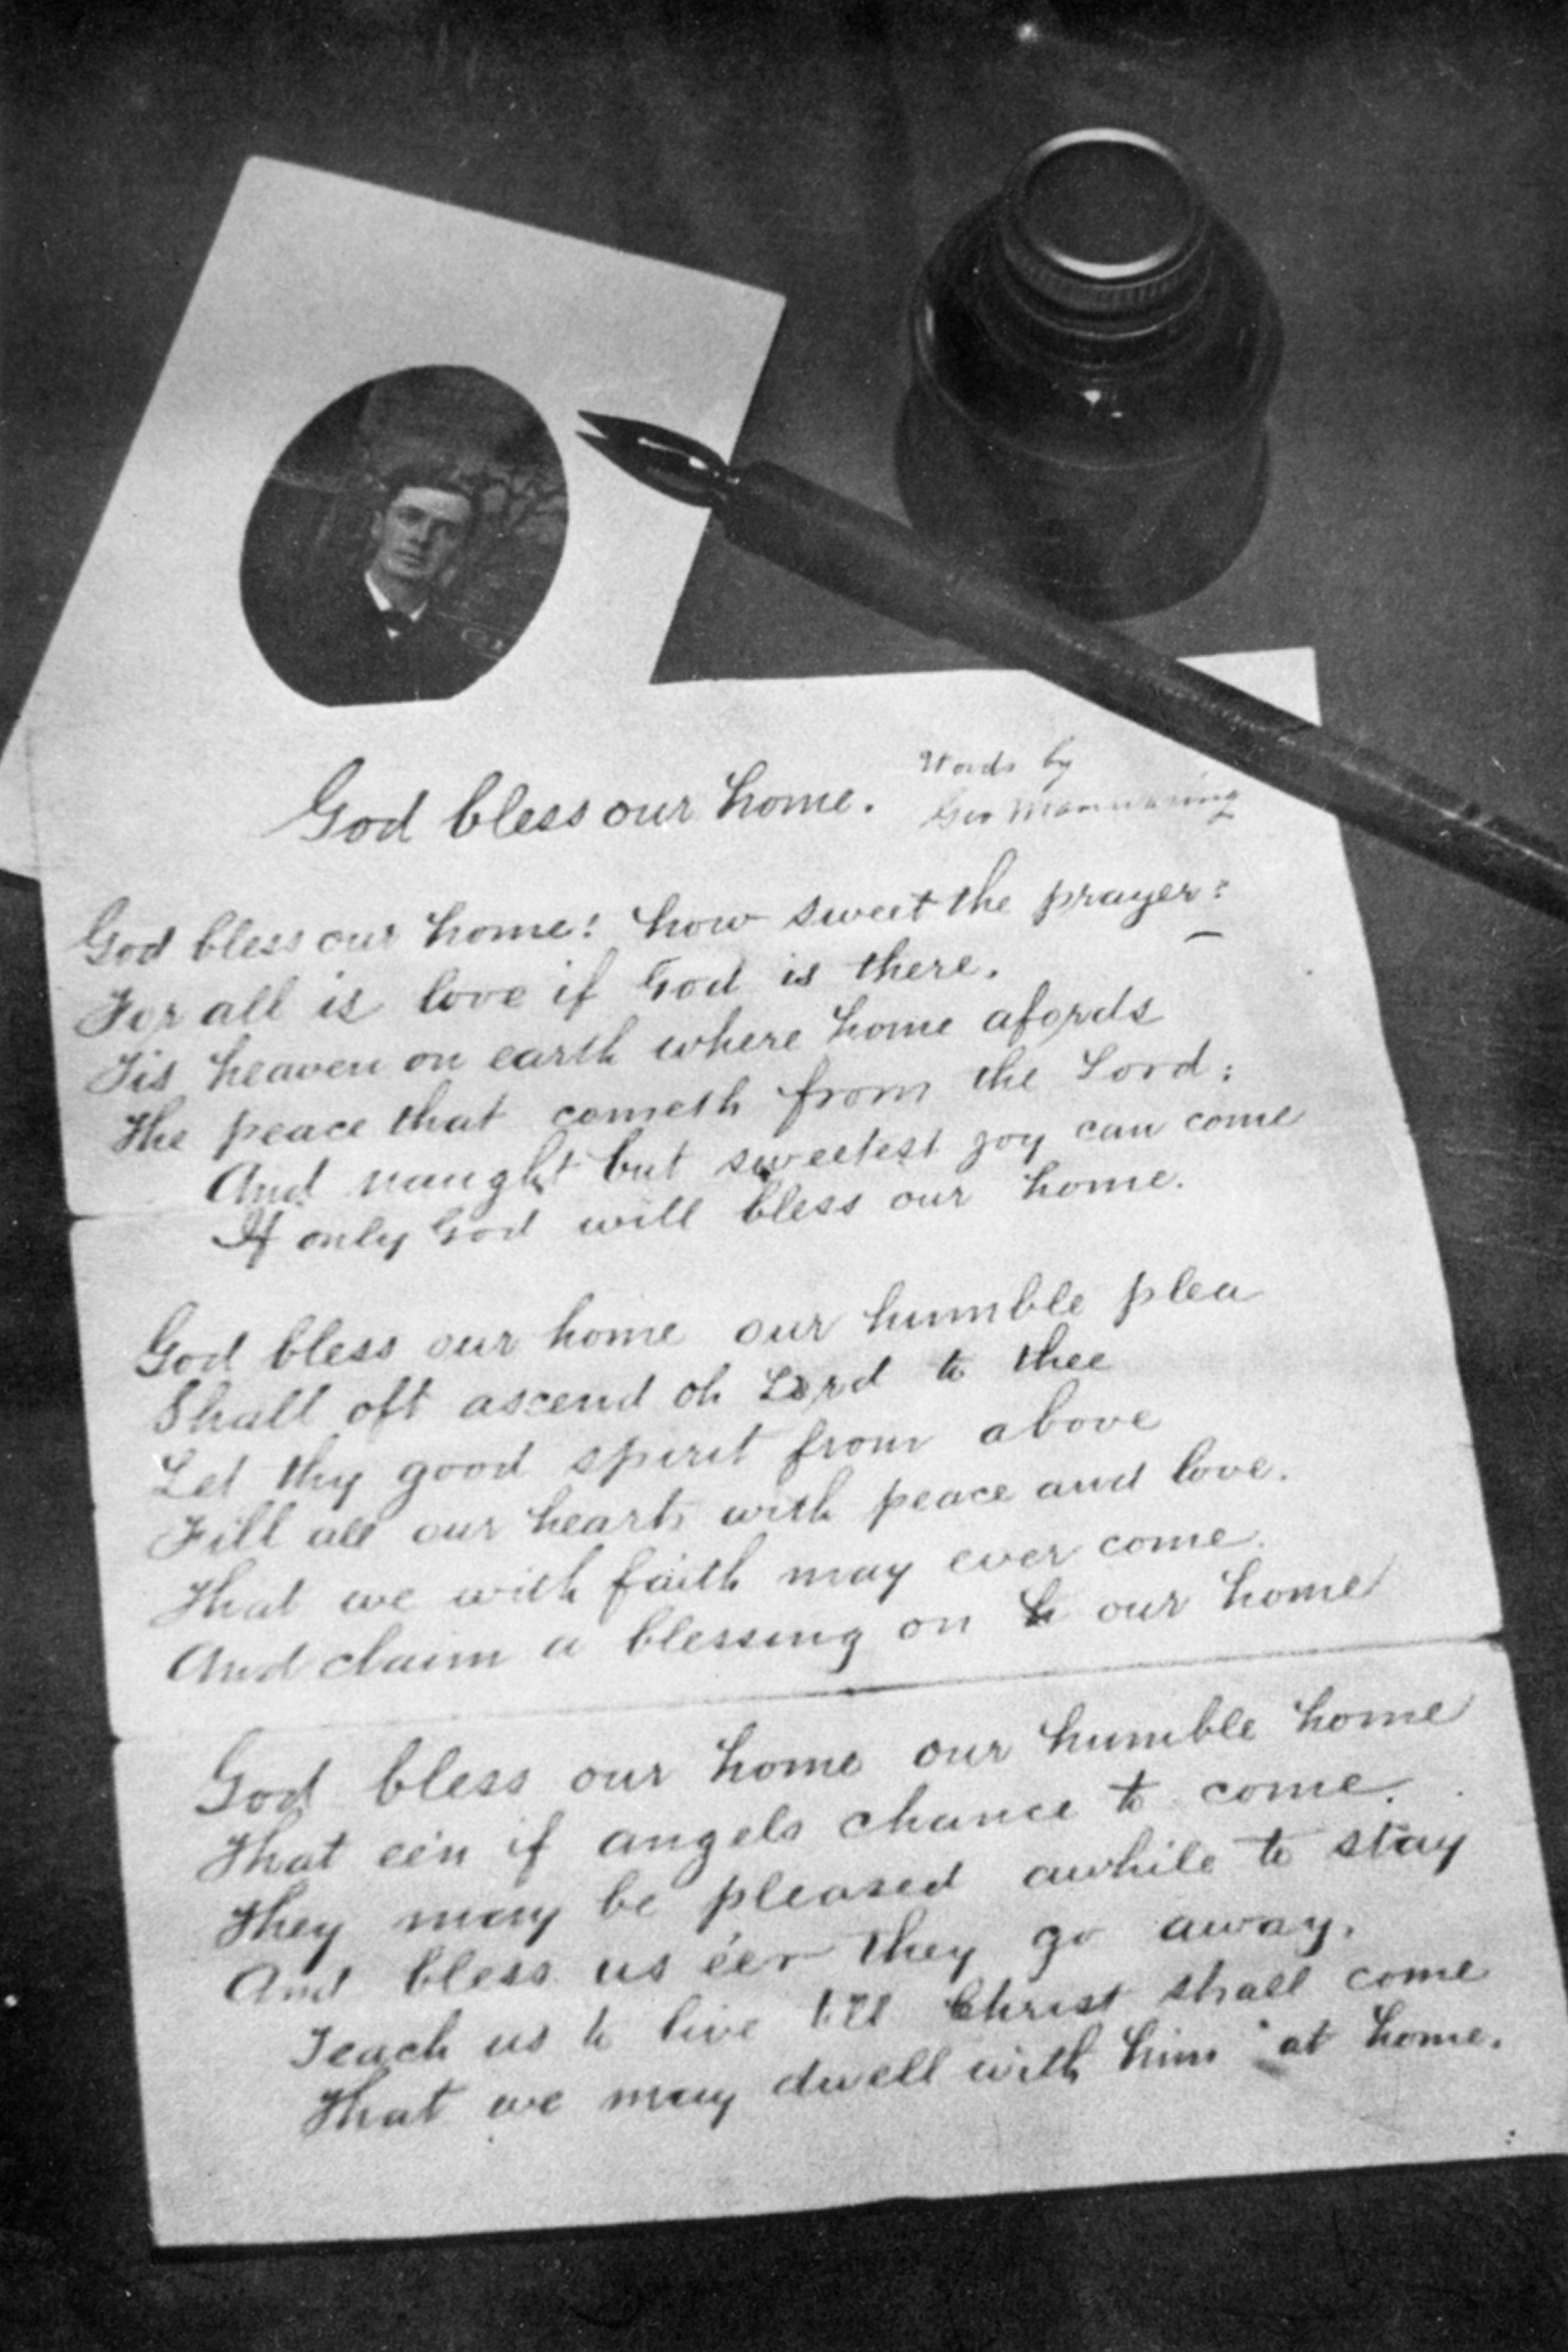 God bless our home.
Words by
Geo Mannwaring
God bless our home! how sweet the prayer:
For all is love if God is there.
Tis heaven on earth where home afords
The peace that cometh from the Lord;
And naught but sweetest joy can come
If only God will bless our home.
God bless our home our humble plea
Shall oft ascend oh Lord to thee
Let thy good spirit from above
Fill all our hearts with peace and love.
That we with faith may ever come.
And claim a blessing on our home
God bless our home our humble home
That een if angels chance to come.
They may be pleased awhile to stay
And bless us éer they go away.
Teach us to live till Christ shall come
That we may dwell with him at home.